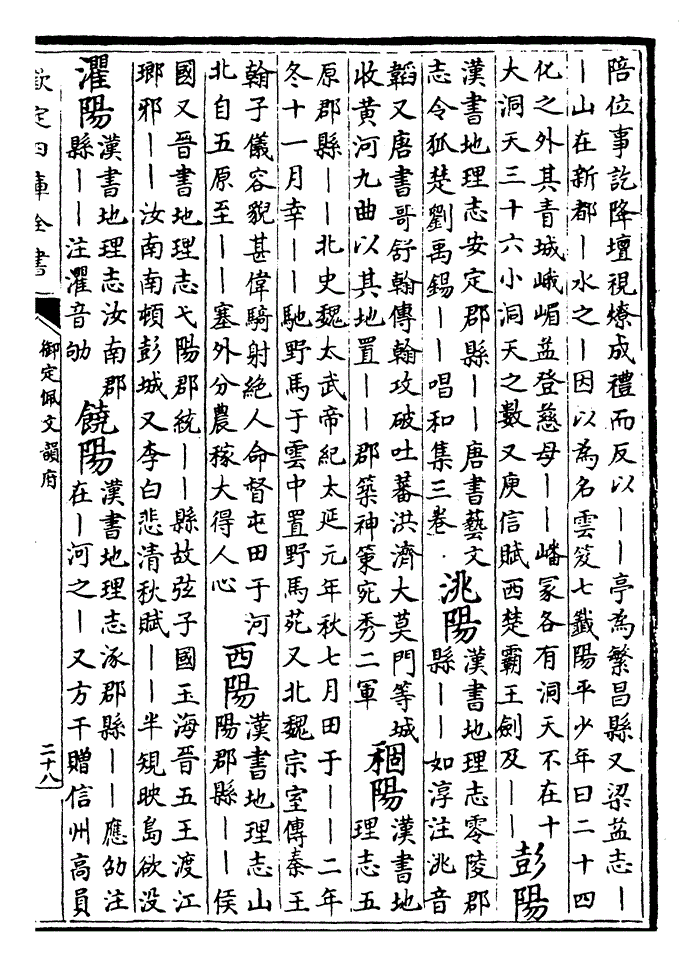 陪位事訖降壇視燎成禮而反以——亭為繁昌縣又梁益志—
—山在新都—水之—因以為名雲笈七籤陽平少年曰二十四
化之外其青城峨嵋益登慈母——嶓冢各有洞天不在十
大洞天三十六小洞天之數又庾信賦西楚霸王劍及——
彭陽
漢書地理志安定郡縣——唐書藝文
志令狐楚劉禹錫——唱和集三卷
洮陽
漢書地理志零陵郡
縣——如淳注洮音
韜又唐書哥舒翰傳翰攻破吐蕃洪濟大莫門等城
收黄河九曲以其地置——郡築神策宛秀二軍
稒陽
漢書地
理志五
原郡縣——北史魏太武帝紀太延元年秋七月田于——二年
冬十一月幸——馳野馬于雲中置野馬苑又北魏宗室傳秦王
翰子儀容貌甚偉騎射絕人命督屯田于河
北自五原至——塞外分農稼大得人心
西陽
漢書地理志山
陽郡縣——侯
國又晉書地理志弋陽郡統——縣故弦子國玉海晉五王渡江
瑯邪——汝南南頓彭城又李白悲清秋賦——半規映島欲没
灈陽
漢書地理志汝南郡
縣——注灈音劬
饒陽
漢書地理志涿郡縣——應劭注
在—河之—又方干贈信州高員
欽定四庫全書
御定佩文韻府
二十八